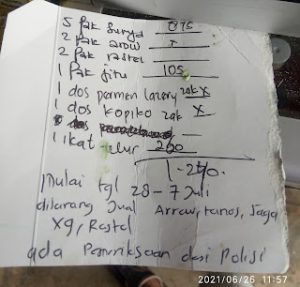 5 Pak Surya 875
2 Pak arow -
2 Pak rastel
1 Pak Jitu 105
1 dos permen lazery zak X
1 dos kopiko zak X
1 ikat telur 260
1.240.
Mulai tgl 28-7 Juli
dilarang Jual Arrow, tanos, Jaga
X9, Rastel
ada Pemriksaan dari Polisi
2021/06/26 11:57